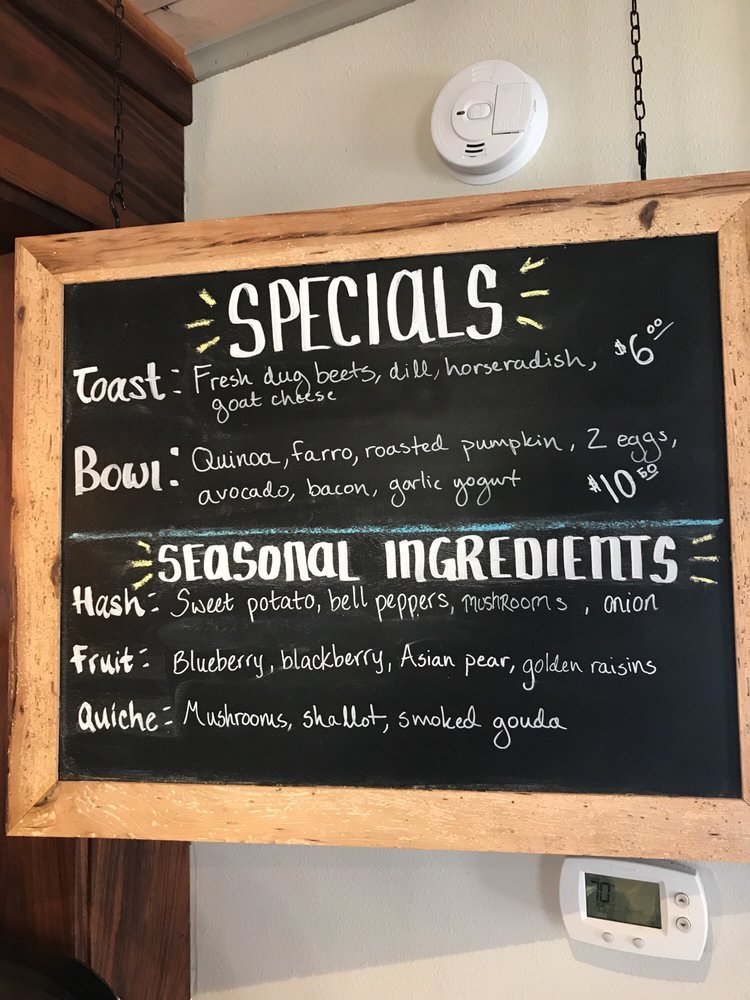 SPECIALS
Toast: Fresh dug beets, dill, horseradish, $6.00
goat cheese
Bowl: Quinoa, farro, roasted pumpkin, 2 eggs,
avocado, bacon, garlic yogurt $10.50
SEASONAL INGREDIENTS
Hash: Sweet potato, bell peppers, mushrooms, onion
Fruit: Blueberry, blackberry, Asian pear, golden raisins
Quiche: Mushrooms, shallot, smoked gouda
70